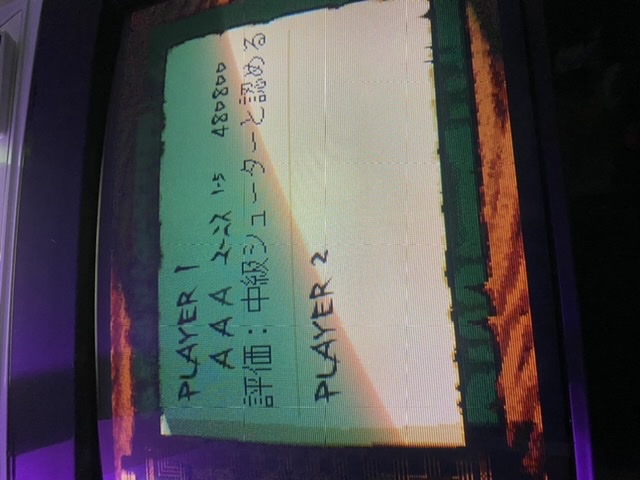 PLAYER 1
AAA コース 1-5 480800
評価：中級シューターと認める
PLAYER 2